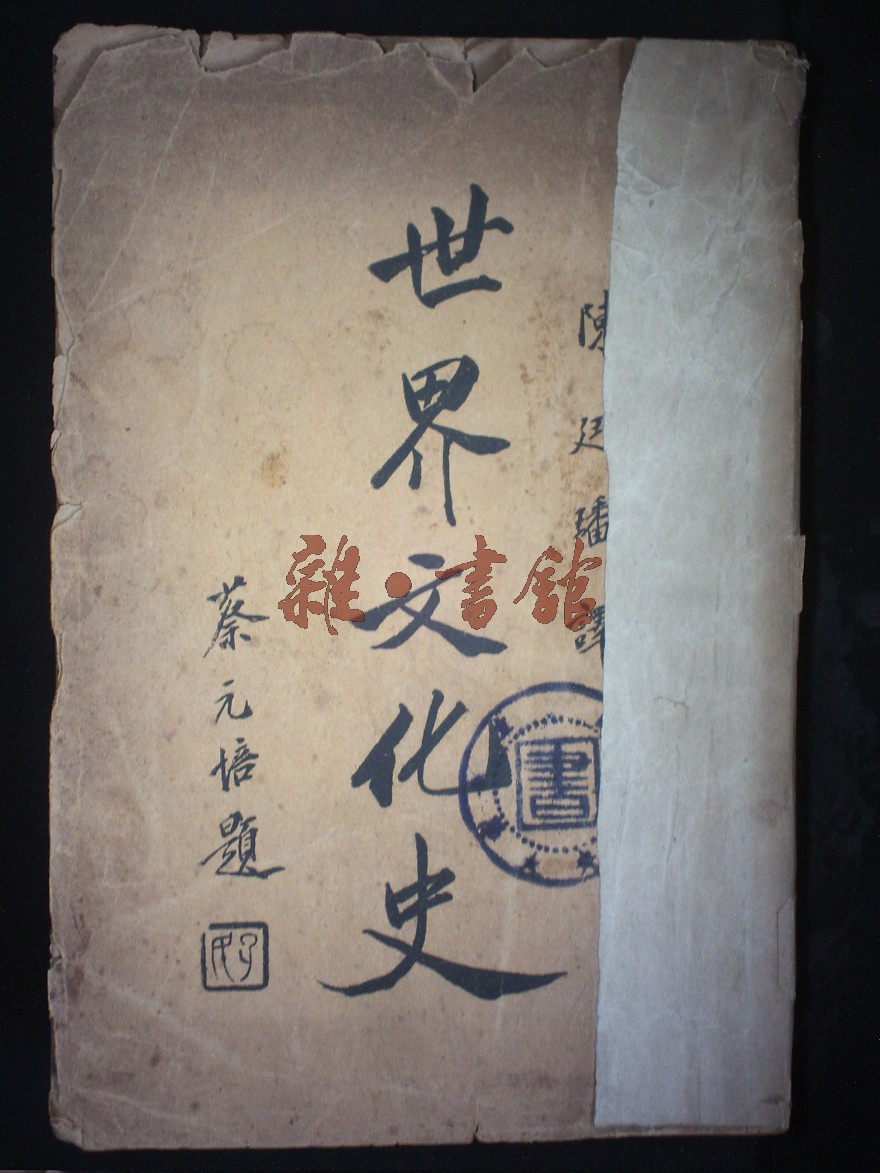 陳廷璠譯
世界文化史
蔡元培題
孑民
雜·書館
書